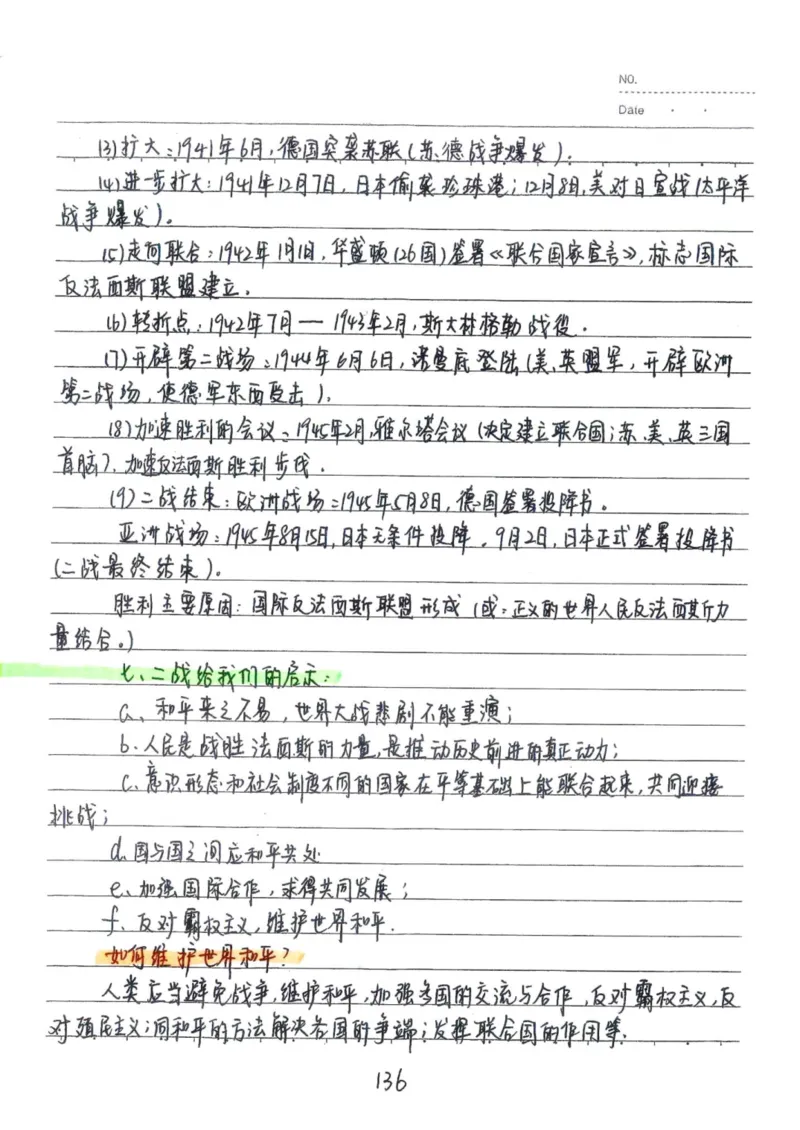 NO.
Date
(3)扩大:1941年6月,德国突袭苏联(苏、德战争爆发)。
(4)进一步扩大:1941年12月7日,日本偷袭珍珠港;12月8日,美对日宣战(太平洋
战争爆发)。
(5)走向联合:1942年1月1日,华盛顿(26国)签署《联合国家宣言》,标志国际
反法西斯联盟建立.
(6)转折点:1942年7月—1943年2月,斯大林格勒战役.
(7)开辟第二战场:1944年6月6日,诺曼底登陆(美、英盟军,开辟欧洲
第二战场,使德军东西受击).
(8)加速胜利的会议:1945年2月,雅尔塔会议(决定建立联合国;苏、美、英三国
首脑).加速反法西斯胜利步伐.
(9)二战结束:欧洲战场:1945年5月8日,德国签署投降书。
亚洲战场:1945年8月15日,日本无条件投降.9月2日,日本正式签署投降书
(二战最终结束).
胜利主要原因:国际反法西斯联盟形成(或:正义的世界人民反法西斯力
量结合。)
七、二战给我们的启示:
a、和平来之不易,世界大战悲剧不能重演;
b.人民是战胜法西斯的力量,是推动历史前进的真正动力;
c.意识形态和社会制度不同的国家在平等基础上能联合起来,共同迎接
挑战;
d.国与国之间应和平共处
e、加强国际合作,求得共同发展;
f、反对霸权主义,维护世界和平.
如何维护世界和平?
人类应当避免战争,维护和平,加强各国的交流与合作,反对霸权主义,反
对殖民主义;用和平的方法解决各国的争端;发挥联合国的作用等.
136